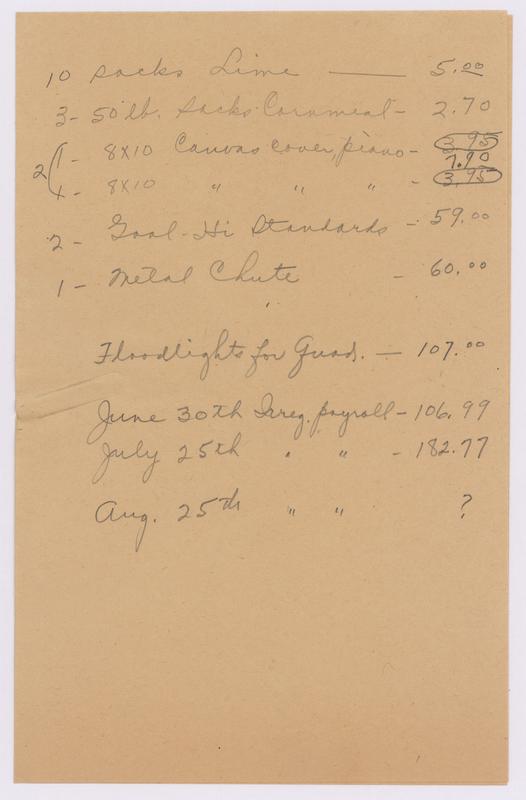 10 sacks Lime — 5.00
3 - 50 lb. sacks Cornmeal - 2.70
2 ( 1 - 8x10 Canvas cover, piano - 3.95
7.90
1 - 8x10 " " " - 3.95
2 - Goal-Hi Standards - 59.00
1 - Metal Chute - 60.00
Floodlights for Guad. — 107.00
June 30th Irreg. payroll - 106.99
July 25th " " - 182.77
Aug. 25th " " ?